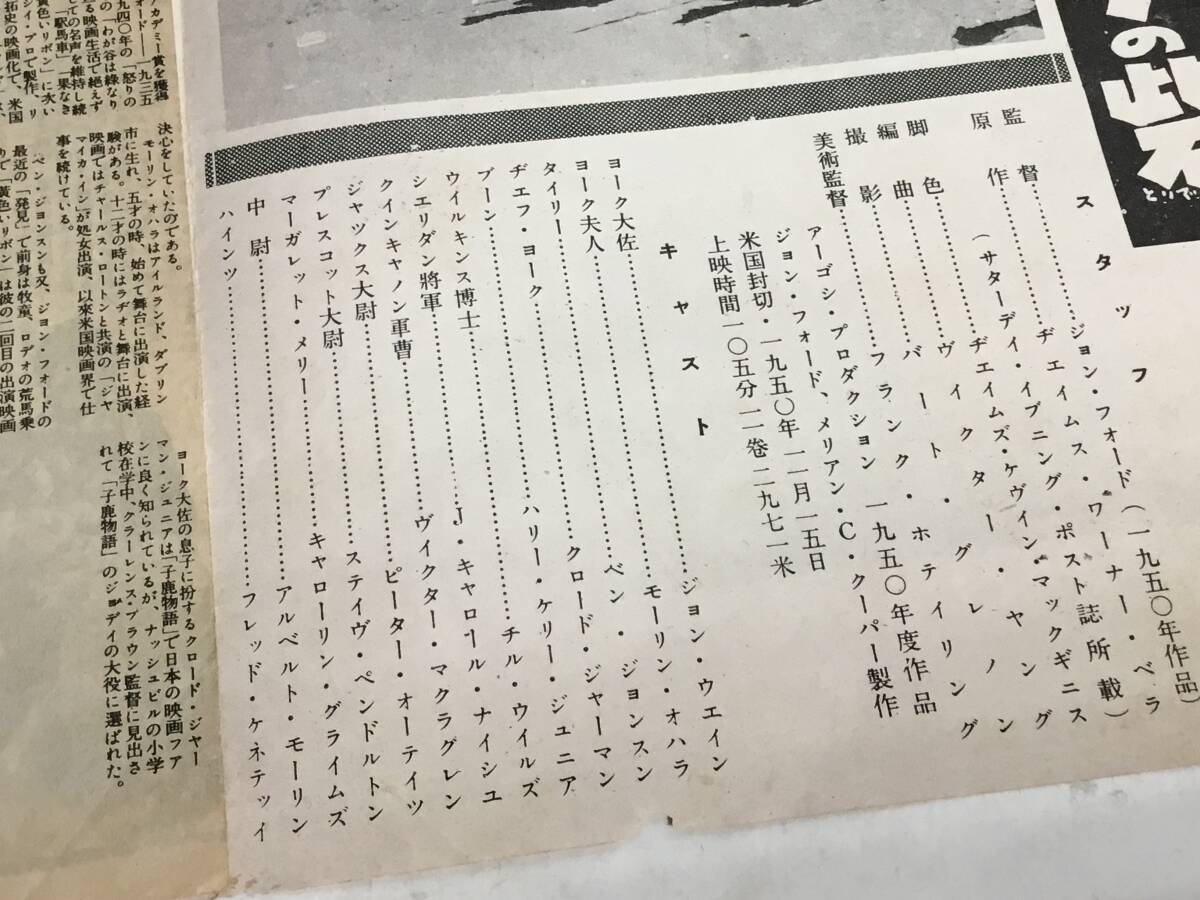 の砦
とりで
スタッフ
監督‥‥‥‥ジョン・フォード(一九五〇年作品)
原作‥‥‥‥ヂェイムス・ワーナー・ベラ
(サタデイ・イブニング・ポスト誌所載)
脚色‥‥‥‥ヂェイムズ・ケヴィン・マックギネス
編曲‥‥‥‥ヴィクター・ヤング
撮影‥‥‥‥バート・グレノン
美術監督‥‥‥‥フランク・ホテイリング
アーゴシ・プロダクション 一九五〇年度作品
ジョン・フォード、メリアン・C・クーパー製作
米国封切・一九五〇年一一月一五日
上映時間一〇五分一一巻二九七一米
キャスト
ヨーク大佐‥‥‥‥ジョン・ウエイン
ヨーク夫人‥‥‥‥モーリン・オハラ
タイリー‥‥‥‥ベン・ジョンスン
ヂェフ・ヨーク‥‥‥‥クロード・ジャーマン
ブーン‥‥‥‥ハリー・ケリー・ジュニア
ウイルキンス博士‥‥‥‥チル・ウイルズ
シエリダン將軍‥‥‥‥J・キャロール・ナイシュ
クインキャノン軍曹‥‥‥‥ヴィクター・マクラグレン
ジャックス大尉‥‥‥‥ピーター・オーテイツ
プレスコット大尉‥‥‥‥ステイヴ・ペンドルトン
マーガレット・メリー‥‥‥‥キャローリン・グライムズ
中尉‥‥‥‥アルベルト・モーリン
ハインツ‥‥‥‥フレッド・ケネテッィ
アカデミー賞を獲得
ォード――一九三五
九四〇年の「怒りの
の「わが谷は綠なり
る映画生活で絶えず
ての名声を維持し続
「駅馬車」「果なき
黄色いリボン」に次い
シイ・プロで製作、リ
拓史の映画化で、米国
決心をしていたのである。
モーリン・オハラはアイルランド、ダブリン
市に生れ、五才の時、始めて舞台に出演した経
験がある。十二才の時にはラヂオと舞台に出演、
映画ではチャールス・ロートンと共演の「ジャ
マイカ・イン」が処女出演、以來米国映画界で仕
事を続けている。
ベン・ジョンスンも又、ジョン・フォードの
最近の「発見」で前身は牧童、ロデオの荒馬乗
めで「黃色いリボン」は彼の二回目の出演映画
ヨーク大佐の息子に扮するクロード・ジャー
マン・ジュニアは「子鹿物語」で日本の映画ファ
ンに良く知られているが、ナッシュビルの小学
校在学中、クラーレンス・ブラウン監督に見出さ
れて「子鹿物語」のジョディの大役に選ばれた。